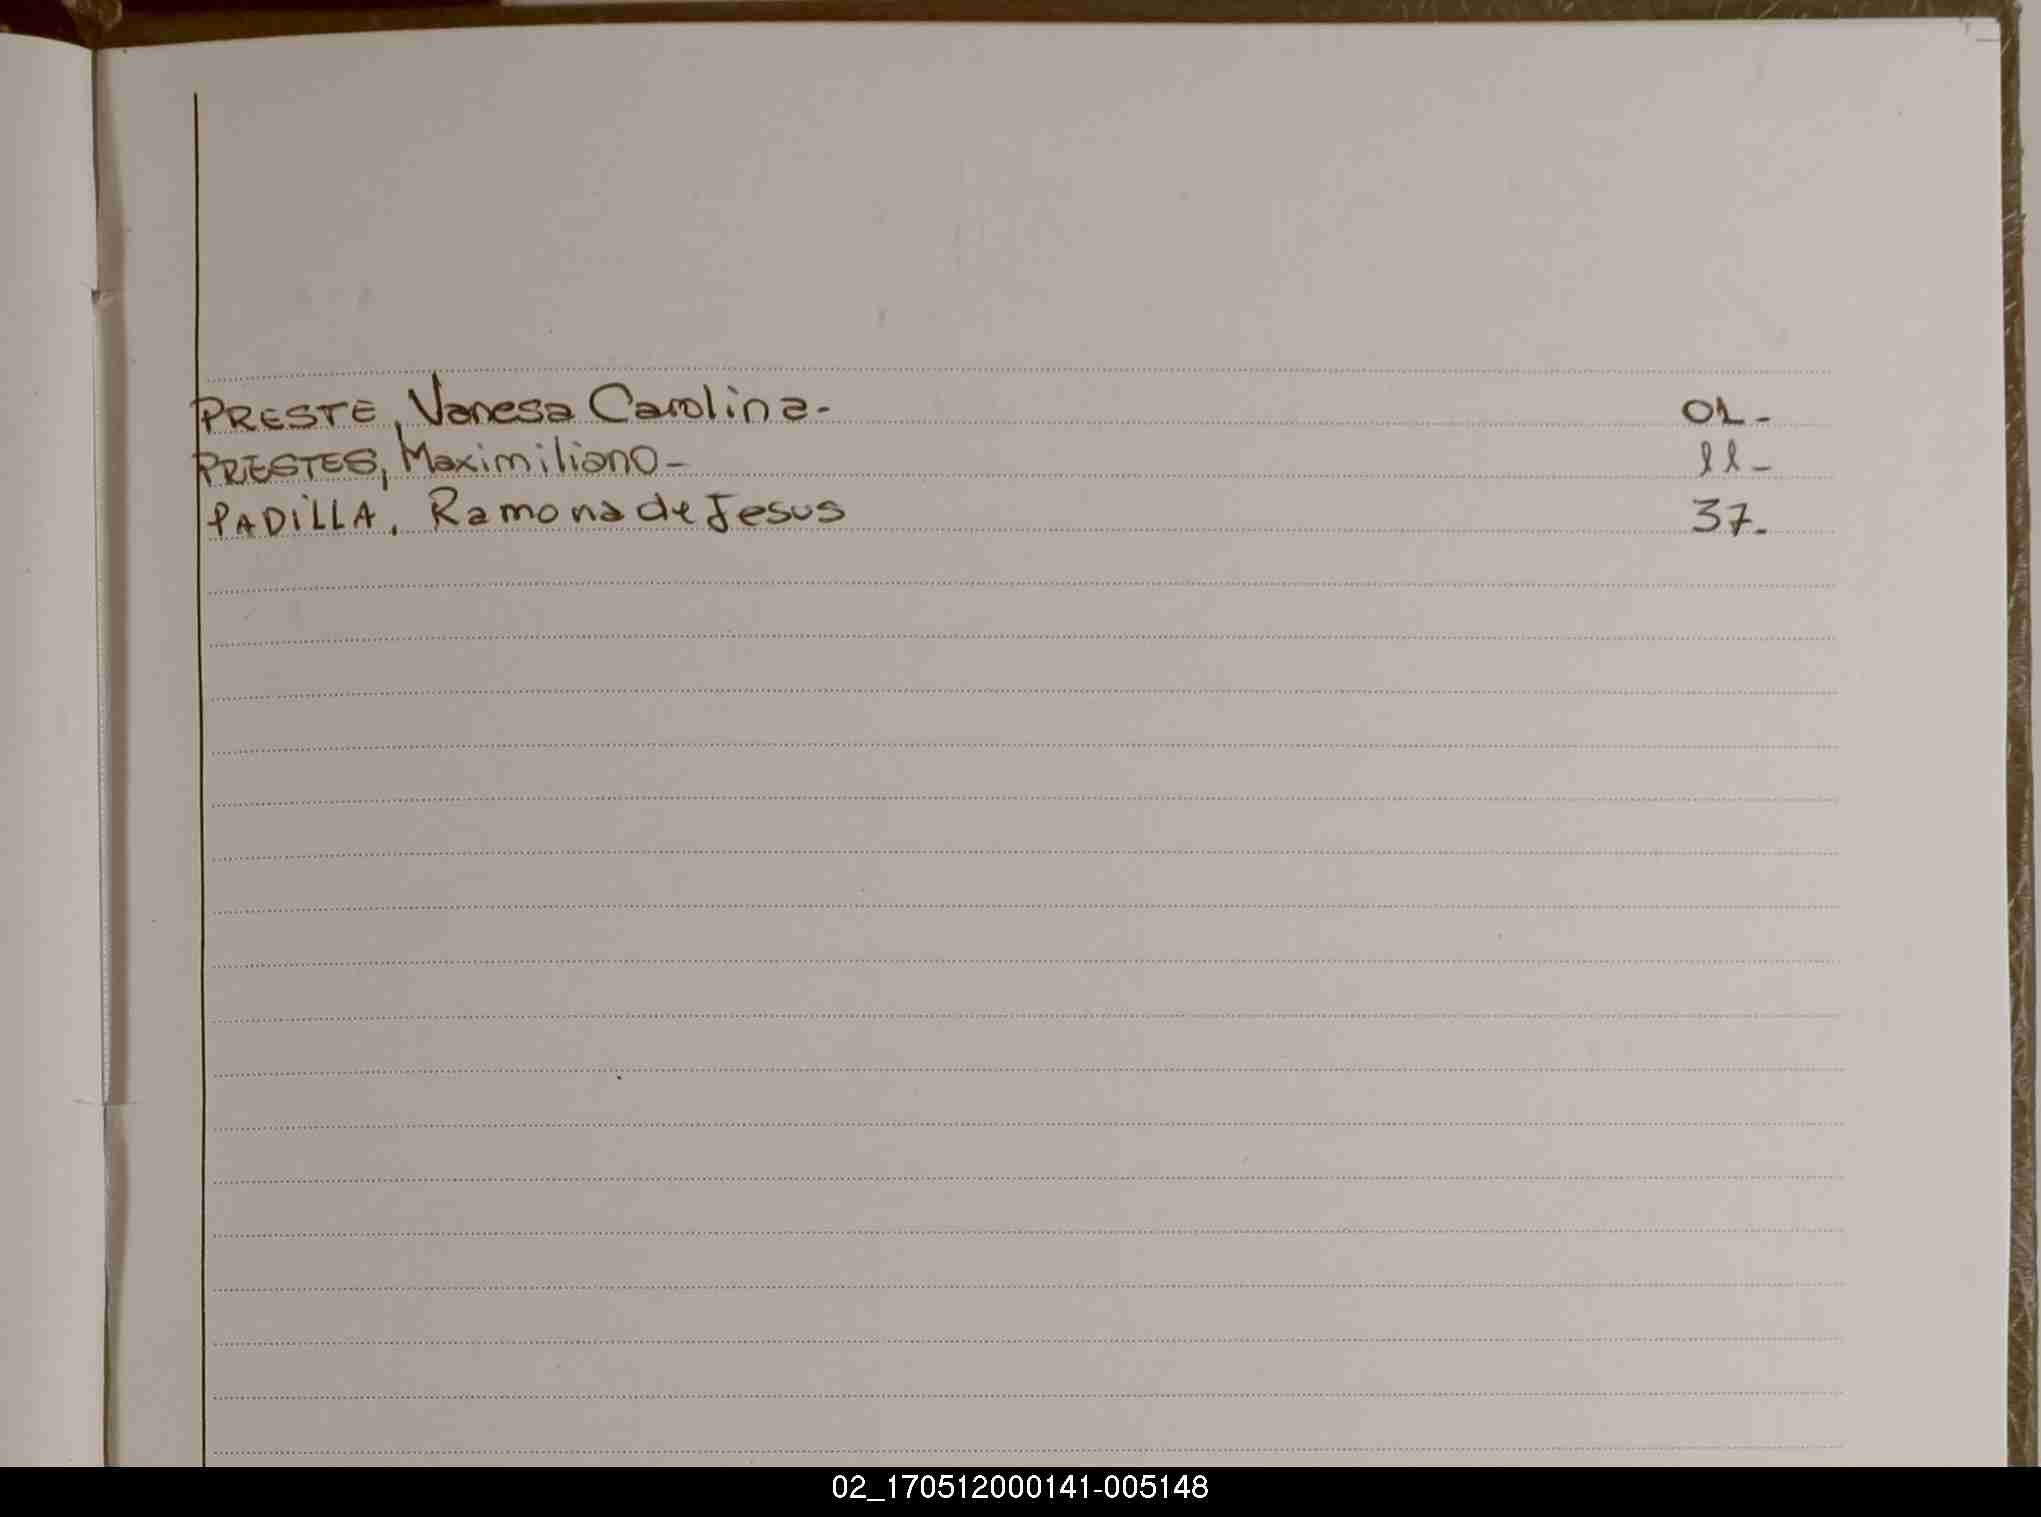 PRESTE, Vanesa Carolina- 01-
PRESTES, Maximiliano- 11-
PADiLLA, Ramona de Jesus 37-
02_170512000141-005148